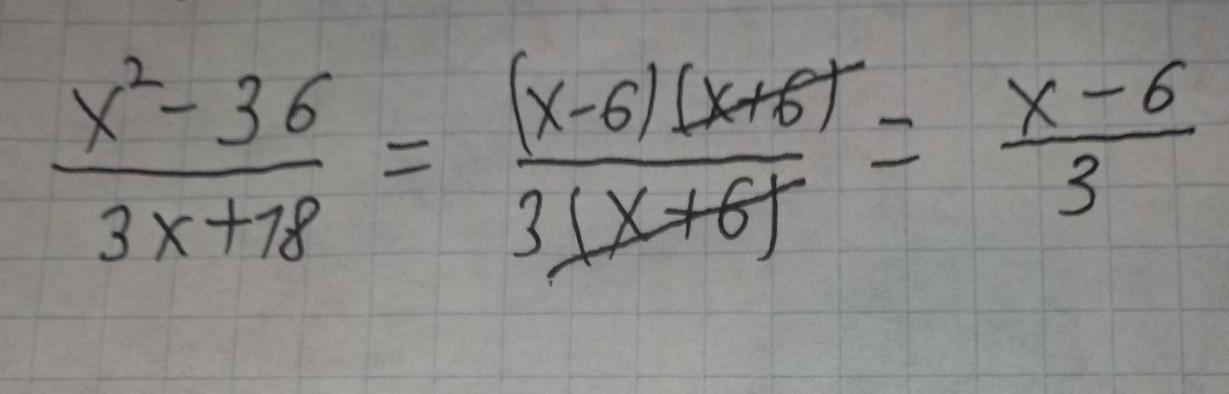 x² - 36 / 3x + 18 = (x - 6)(x + 6) / 3(x + 6) = x - 6 / 3